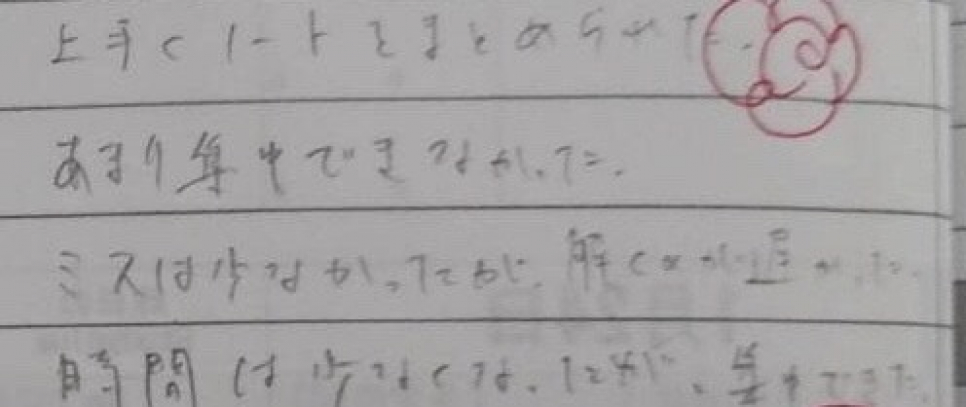 上手くノートをまとめられた.
あまり集中できなかった.
ミスは少なかったが、解くのが遅かった.
時間は少なくなったが、集中できた.